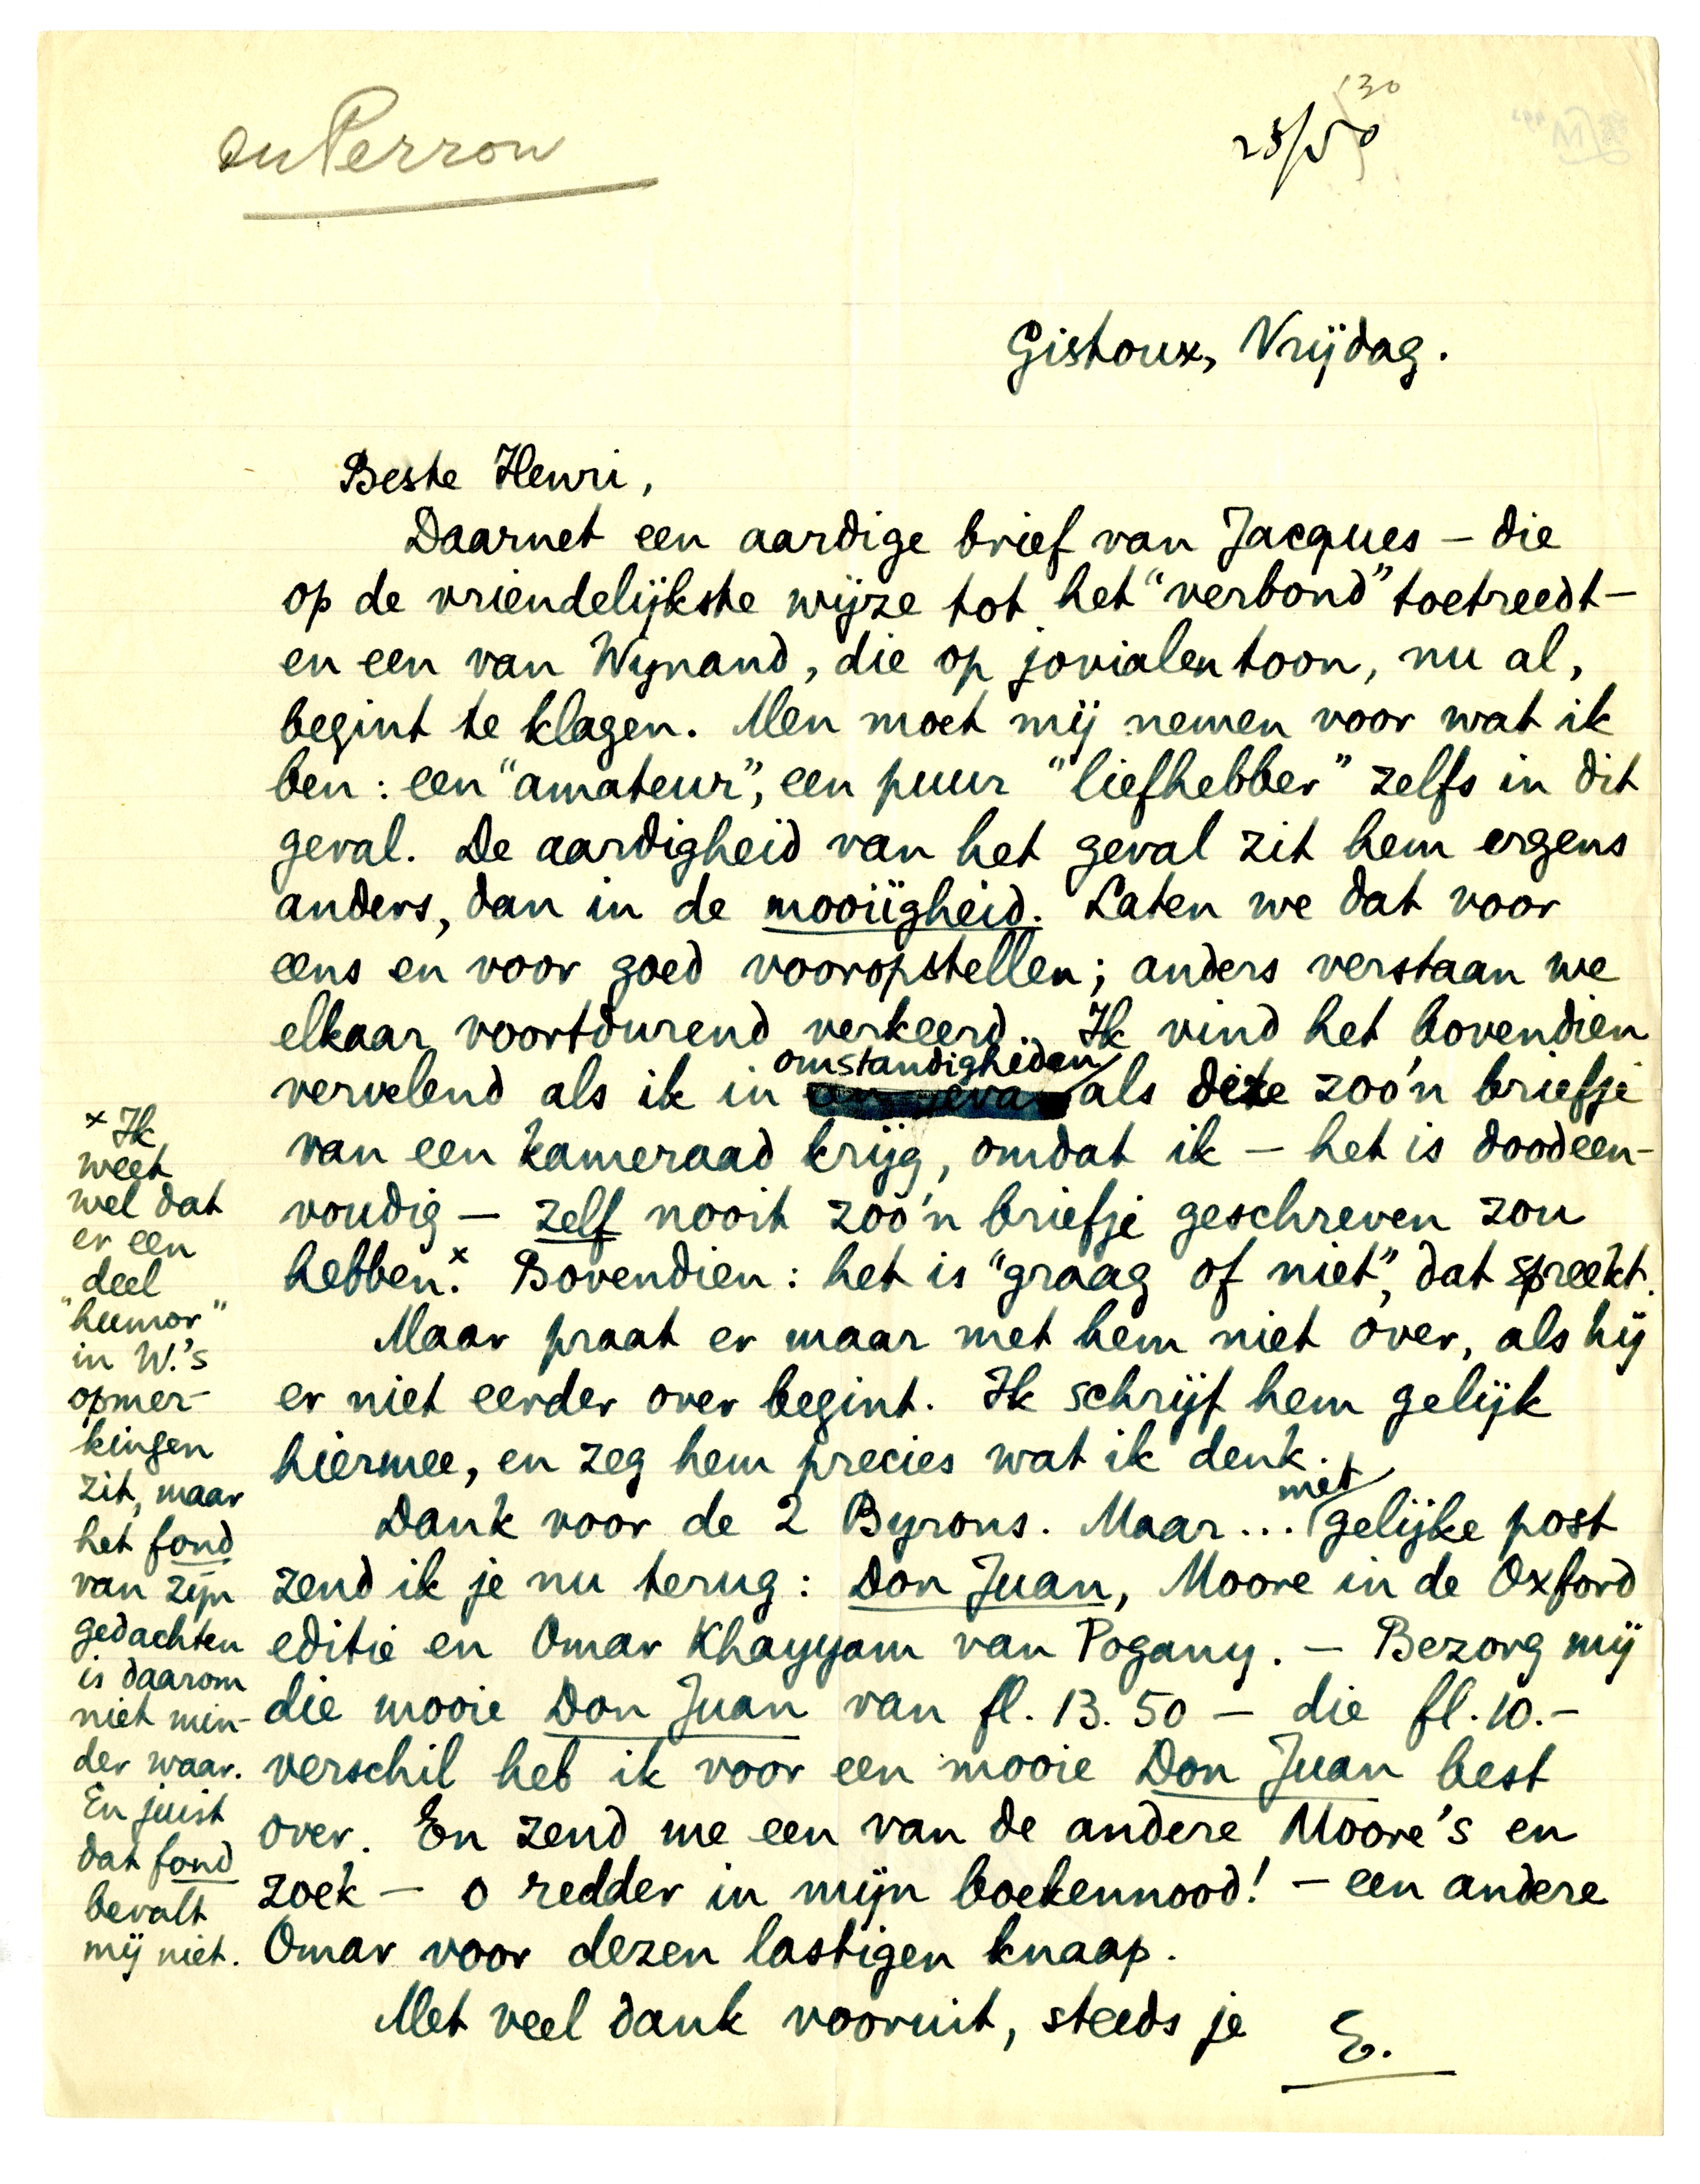 du Perron
'30
Gistoux, Vrijdag.
Beste Henri,
Daarnet een aardige brief van Jacques – die
op de vriendelijkste wijze tot het "verbond" toetreedt –
en een van Wynand, die op jovialen toon, nu al,
begint te klagen. Men moet mij nemen voor wat ik
ben: een "amateur", een puur "liefhebber" zelfs in dit
geval. De aardigheid van het geval zit hem ergens
anders, dan in de mooiïgheid. Laten we dat voor
eens en voor goed vooropstellen; anders verstaan we
elkaar voortdurend verkeerd. Ik vind het bovendien
vervelend als ik in omstandigheden als deze zoo'n briefje
van een kameraad krijg, omdat ik – het is doodeen-
voudig – zelf nooit zoo'n briefje geschreven zou
hebben.x Bovendien: het is "graag of niet", dat spreekt.
Maar praat er maar met hem niet over, als hij
er niet eerder over begint. Ik schrijf hem gelijk
hiermee, en zeg hem precies wat ik denk.
Dank voor de 2 Byrons. Maar... met gelijke post
zend ik je nu terug: Don Juan, Moore in de Oxford
editie en Omar Khayyam van Pogany. – Bezorg mij
die mooie Don Juan van fl. 13.50 – die fl. 10.–
verschil heb ik voor een mooie Don Juan best
over. En zend me een van de andere Moore's en
zoek – o redder in mijn boekennood! – een andere
Omar voor dezen lastigen knaap.
Met veel dank vooruit, steeds je
E.
x Ik
weet
wel dat
er een
deel
"humor"
in W.'s
opmer-
kingen
zit, maar
het fond
van zijn
gedachten
is daarom
niet min-
der waar.
En juist
dat fond
bevalt
mij niet.